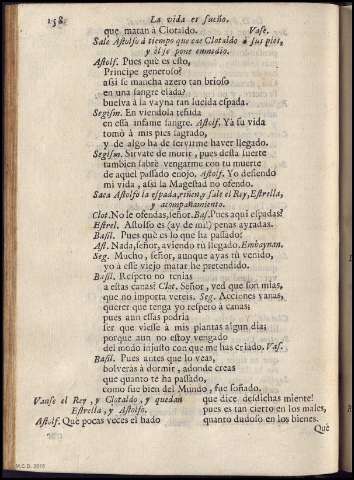 158. La vida es sueño.
que matan à Clotaldo. Vase.
Sale Astolfo á tiempo que cae Clotaldo à sus pies,
y él se pone enmedio.
Astolf. Pues què es esto,
Principe generoso?
assi se mancha azero tan brioso
en una sangre elada?
buelva à la vayna tan lucida espada.
Segism. En viendola teñida
en essa infame sangre. Astolf. Yà su vida
tomò à mis pies sagrado,
y de algo ha de servirme haver llegado.
Segism. Sirvate de morir, pues desta suerte
tambien sabrè vengarme con tu muerte
de aquel passado enojo. Astolf. Yo defiendo
mi vida, assi la Magestad no ofendo.
Saca Astolfo la espada, riñen, y sale el Rey, Estrella,
y acompañamiento.
Clot. No le ofendas, señor. Bas. Pues aqui espadas?
Estrel. Astolfo es (ay de mi!) penas ayradas.
Basil. Pues què es lo que ha passado?
Ast. Nada, señor, aviendo tù llegado. Embaynan.
Seg. Mucho, señor, aunque ayas tù venido,
yo à esse viejo matar he pretendido.
Basil. Respeto no tenias
a estas canas? Clot. Señor, ved que son mias,
que no importa vereis. Seg. Acciones vanas,
querer que tenga yo respeto à canas;
pues aun essas podria
ser que viesse à mis plantas algun dia;
porque aun no estoy vengado
del modo injusto con que me has criado. Vas.
Basil. Pues antes que lo veas,
bolveràs à dormir, adonde creas
que quanto te ha passado,
como fue bien del Mundo, fue soñado.
Vanse el Rey, y Clotaldo, y quedan
Estrella, y Astolfo.
Astolf. Què pocas veces el hado
que dice desdichas miente!
pues es tan cierto en los males,
quanto dudoso en los bienes.
Què
M.C.D. 2018